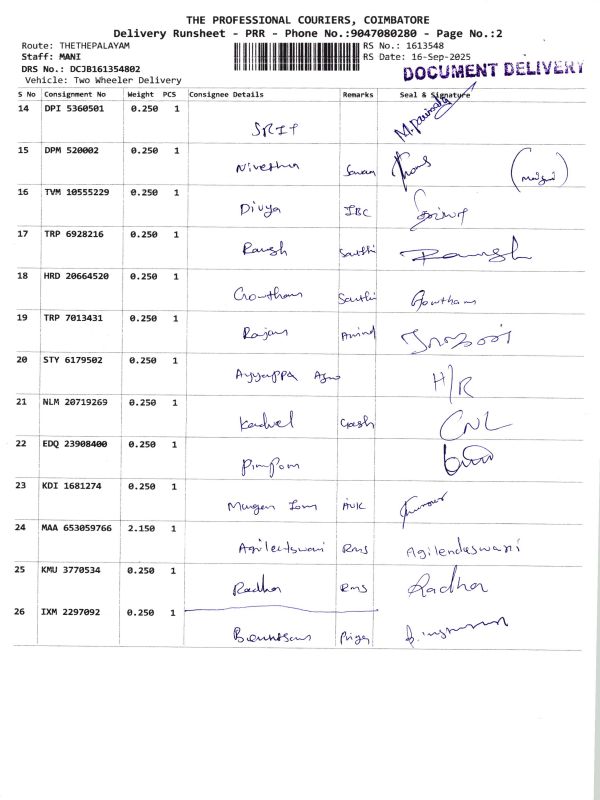 THE PROFESSIONAL COURIERS, COIMBATORE
Delivery Runsheet - PRR - Phone No.:9047080280 - Page No.:2
Route: THETHEPALAYAM RS No.: 1613548
Staff: MANI RS Date: 16-Sep-2025
DRS No.: DCJB161354802 DOCUMENT DELIVERY
Vehicle: Two Wheeler Delivery
S No Consignment No Weight PCS Consignee Details Remarks Seal & Signature
14 DPI 5360501 0.250 1
SRIT
15 DPM 520002 0.250 1
Nivetha
16 TVM 10555229 0.250 1
Divya IBC
17 TRP 6928216 0.250 1
Sakthi
18 HRD 20664520 0.250 1
Gowtham Sakthi Gowtham
19 TRP 7013431 0.250 1
Rajan Arvind
20 STY 6179502 0.250 1
Ayyappa H/R
21 NLM 20719269 0.250 1
CNL
22 EDQ 23908400 0.250 1
Pimpom
23 KDI 1681274 0.250 1
Murugan
24 MAA 653059766 2.150 1
RMS Agilendeswari
25 KMU 3770534 0.250 1
Radha RMS Radha
26 IXM 2297092 0.250 1